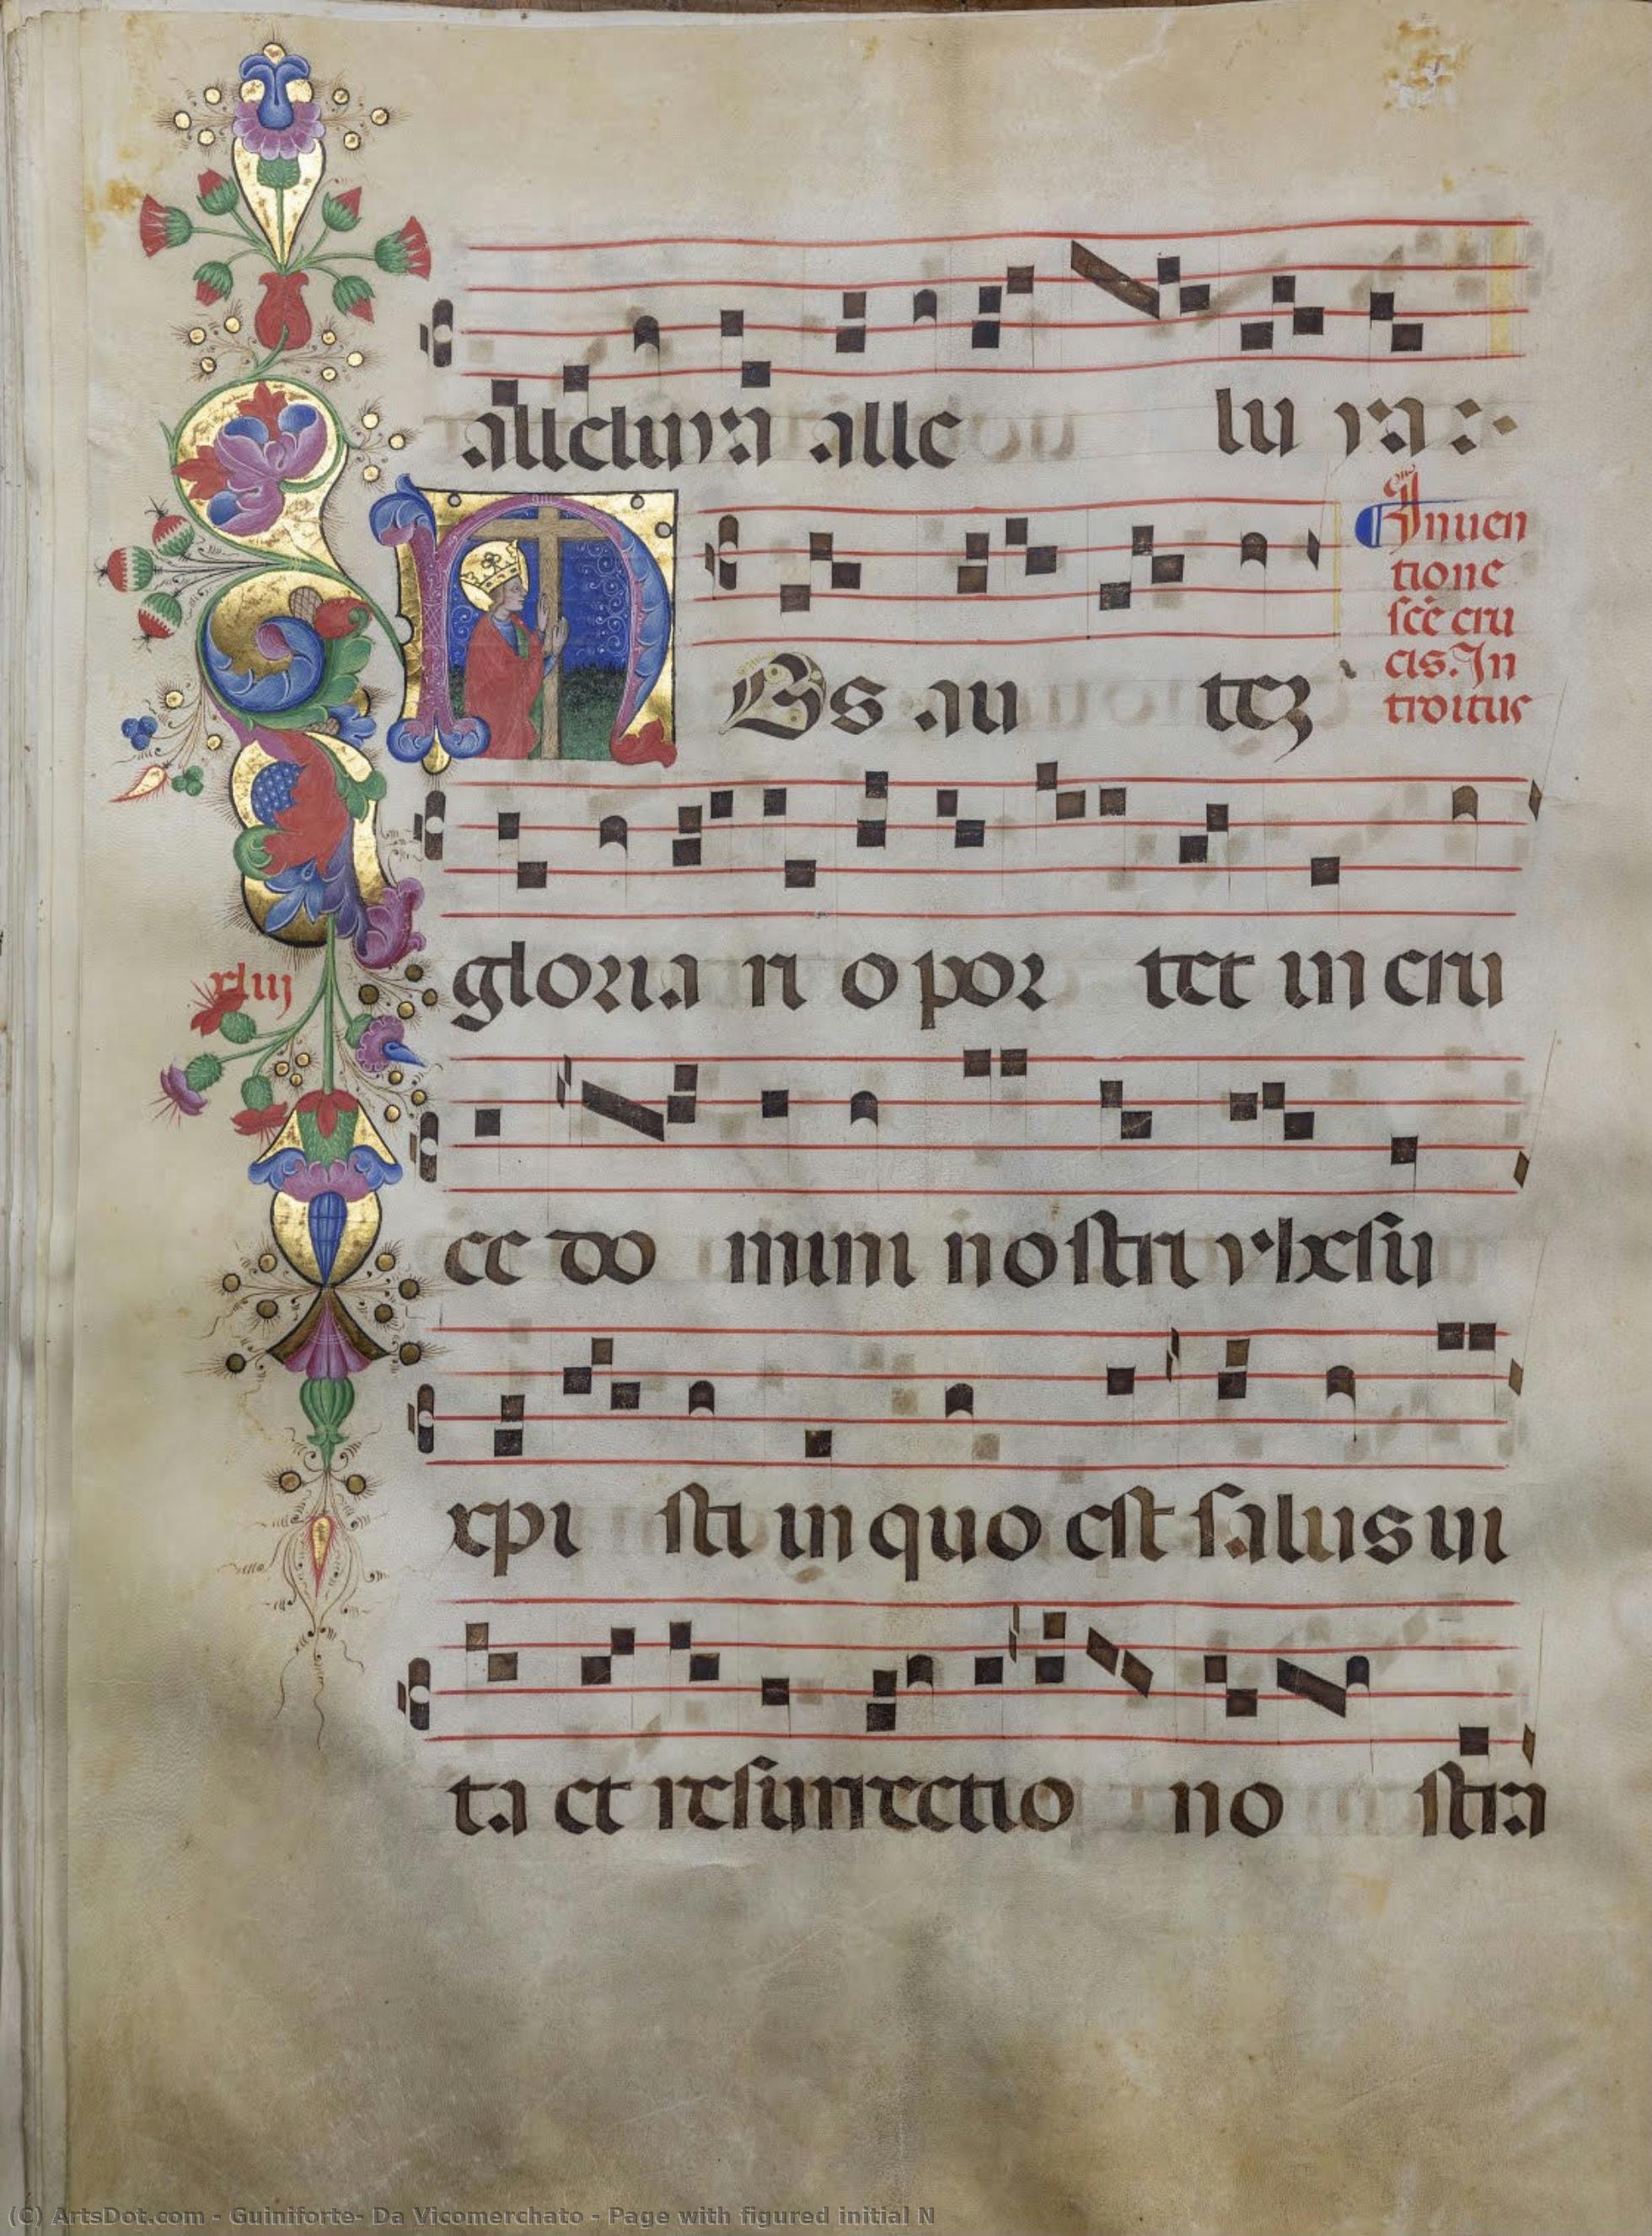 alleluya alle lu ya :
NOs au tez
In inuen
tione
scē cru
cis. In
troitus
gloria ri o por tet in cru
xliij
ce do mini nostri yhesu
xpi sti in quo est salus ui
ta et resurrectio no stra
(C) ArtsDot.com - Guiniforte- Da Vicomerchato - Page with figured initial N